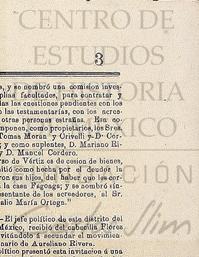 CENTRO DE
ESTUDIOS
3
s, y se nombró una comision inves-
plias facultades, para contratar y
das las cuestiones pendientes con los
o las testamentarías, con los acree-
otras personas estrañas. Esa co-
mponen, como propietarios, los Sres.
Tomas Moran y Crivelli y D· Cor-
; y como suplentes, D. Mariano Ri-
y D. Manuel Cordero.
rso de Vértiz es de cesion de bienes,
mitió como hecha por el deudor la
ron sus hijos, del haber que les cor-
la casa Fagoaga; y se nombró sín-
resentante de los acreedores, al Sr.
alio María Ortega."
—El jefe político de este distrito del
México, recibió del cabecilla Fiores
vitándolo á secundar el movimien-
nario de Aureliano Rivera.
político presentó esta invitacion á una